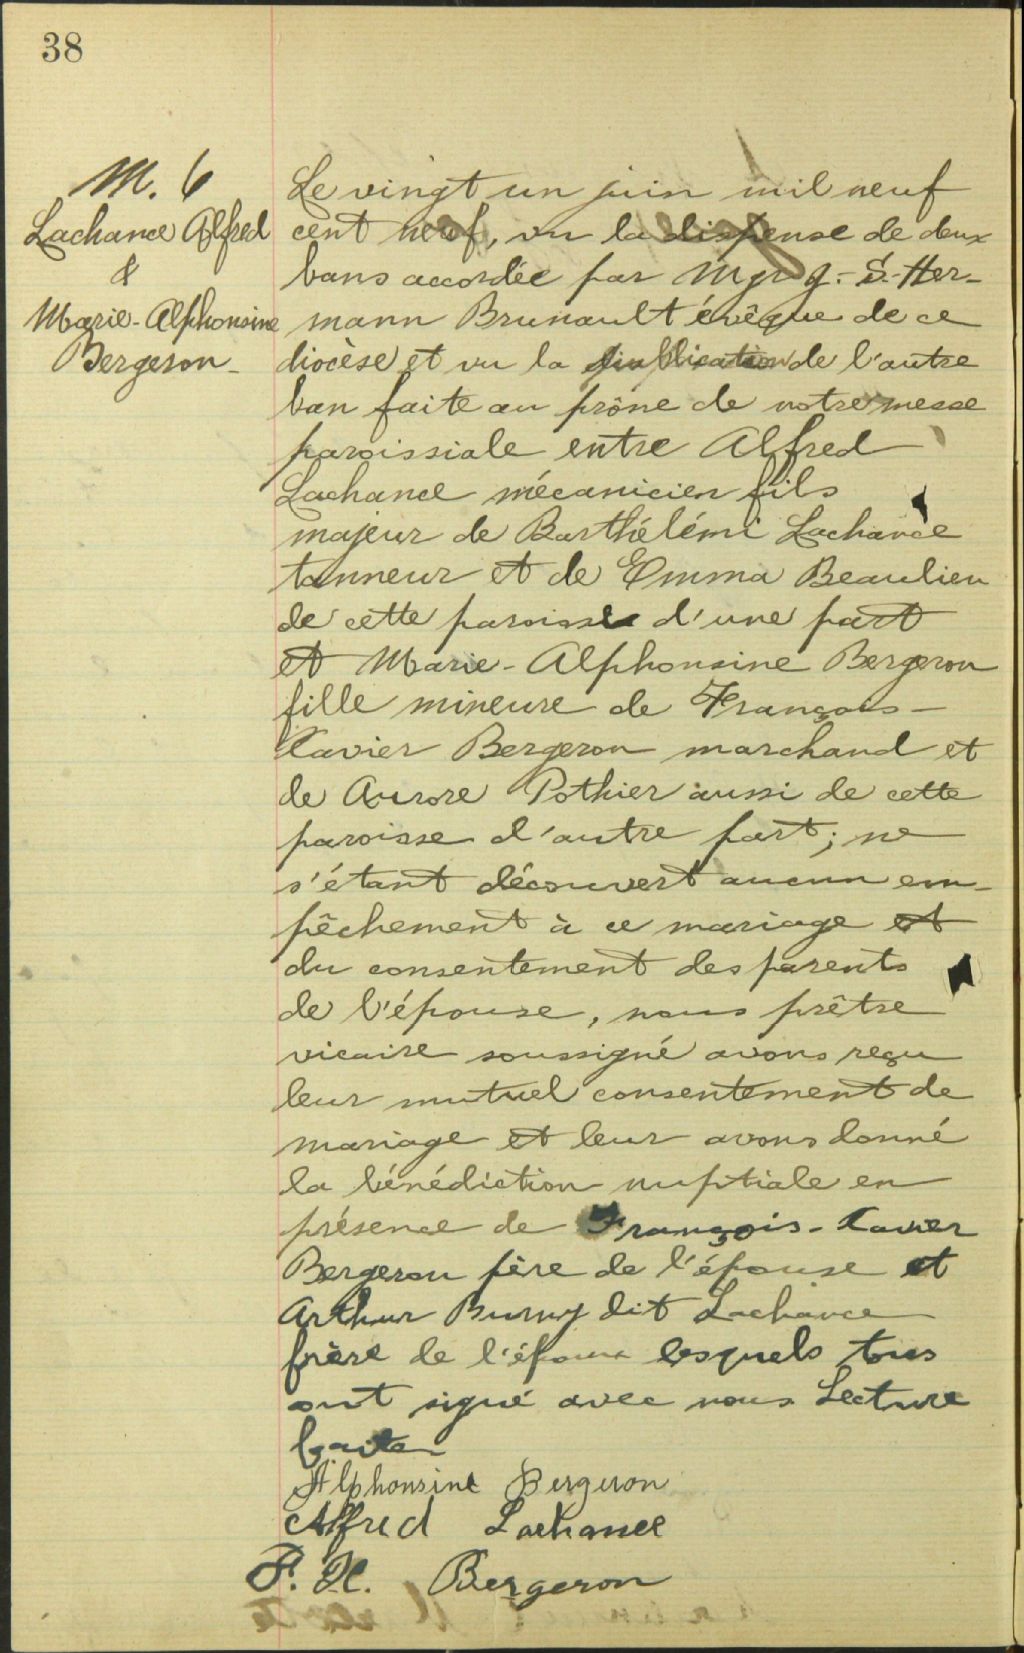 38
M. 6
Lachance Alfred
&
Marie-Alphonsine
Bergeron
Le vingt un juin mil neuf
cent neuf, vu la dispense de deux
bans accordée par Mgr J.-S.-Her-
mann Brunault évêque de ce
diocèse et vu la publication de l'autre
ban faite au prône de notre messe
paroissiale entre Alfred
Lachance mécanicien fils
majeur de Barthélémi Lachance
tanneur et de Emma Beaulieu
de cette paroisse d'une part
et Marie-Alphonsine Bergeron
fille mineure de François-
Xavier Bergeron marchand et
de Aurore Pothier aussi de cette
paroisse d'autre part; ne
s'étant découvert aucun em-
pêchement à ce mariage et
du consentement des parents
de l'épouse, nous prêtre
vicaire soussigné avons reçu
leur mutuel consentement de
mariage et leur avons donné
la bénédiction nuptiale en
présence de François-Xavier
Bergeron père de l'épouse et
Arthur dit Lachance
frère de l'époux lesquels tous
ont signé avec nous Lecture
faite
Alphonsine Bergeron
Alfred Lachance
F. X. Bergeron